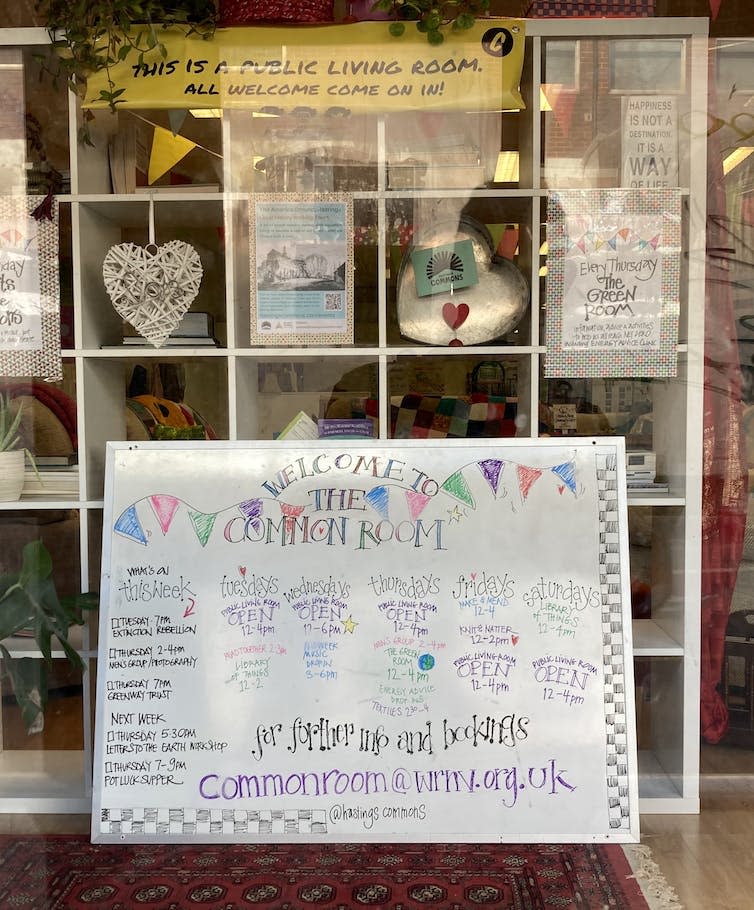 THIS IS A PUBLIC LIVING ROOM.
ALL WELCOME COME ON IN!
HAPPINESS
IS NOT A
DESTINATION.
IT IS A
WAY
OF LIFE
COMMONS
Every Thursday
The
GREEN
ROOM
WELCOME TO
THE
COMMON ROOM
WHAT'S ON
this week
TUESDAY · 7PM
EXTINCTION REBELLION
THURSDAY 2-4PM
MEN'S GROUP/PHOTOGRAPHY
THURSDAY 7PM
GREENWAY TRUST
NEXT WEEK
THURSDAY 5:30PM
LETTERS TO THE EARTH WORKSHOP
THURSDAY 7-9PM
POT LUCK SUPPER
tuesdays
PUBLIC LIVING ROOM
OPEN
12-4pm
LIBRARY
OF THINGS
12-2
wednesdays
PUBLIC LIVING ROOM
OPEN
12-6pm
MIDWEEK
MUSIC
DROP IN
3-6pm
thursdays
PUBLIC LIVING ROOM
OPEN
12-4pm
MEN'S GROUP 2-4pm
THE GREEN
ROOM
12-4pm
ENERGY ADVICE
DROP-INS
fridays
MAKE & MEND
12-4
KNIT & NATTER
12-2pm
PUBLIC LIVING ROOM
OPEN
12-4pm
saturdays
LIBRARY
OF THINGS
12-4pm
PUBLIC LIVING ROOM
OPEN
12-4pm
for further info and bookings
commonroom@wrnv.org.uk
@hastings commons